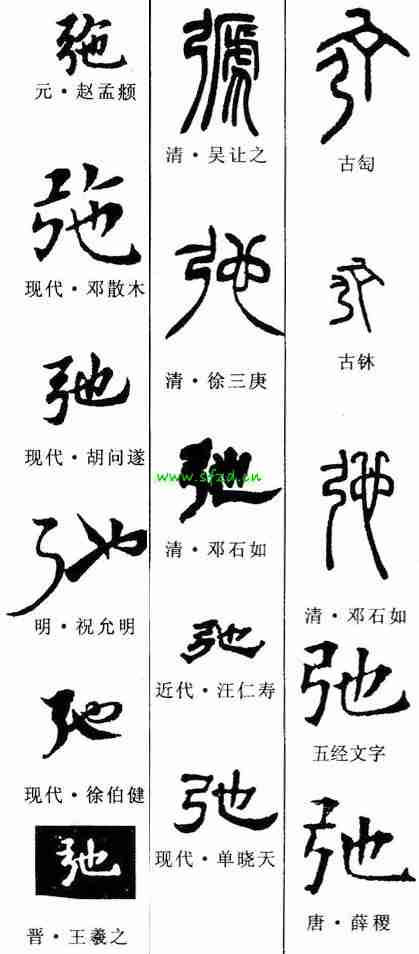 古匋
古
弛
清·邓石如
弛
五经文字
弛
唐·薛稷
清·吴让之
弛
清·徐三庚
弛
www.sfzd.cn
清·邓石如
弛
近代·汪仁寿
弛
现代·单晓天
元·赵孟𫖯
现代·邓散木
弛
现代·胡问遂
弛
明·祝允明
弛
现代·徐伯健
弛
晋·王羲之